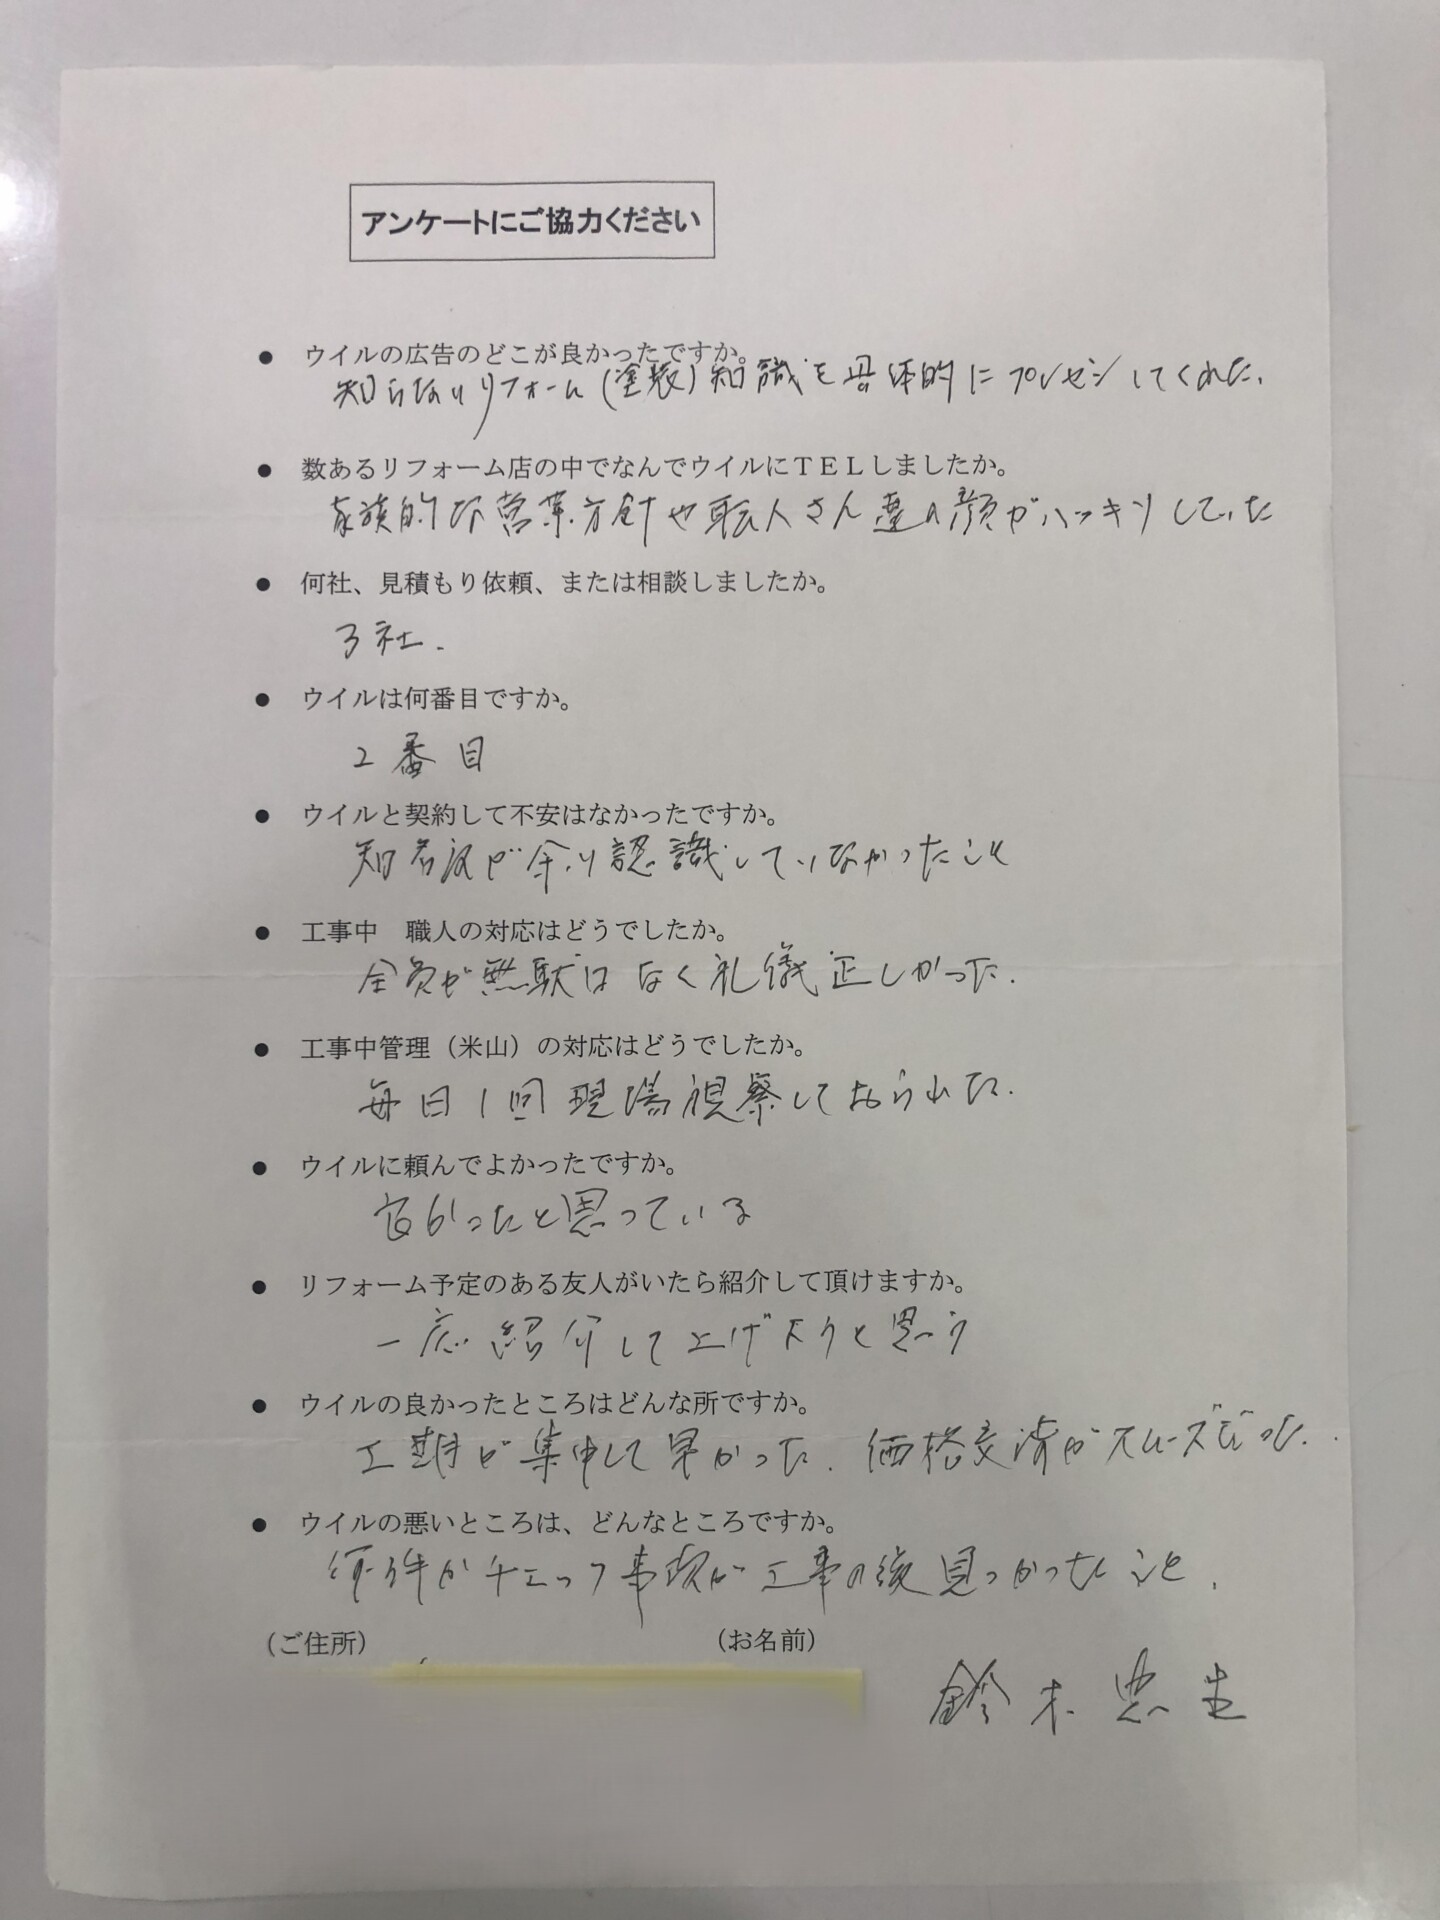 アンケートにご協力ください
● ウイルの広告のどこが良かったですか。
知らないリフォーム(塗装)知識を具体的にプレゼンしてくれた。
● 数あるリフォーム店の中でなんでウイルにＴＥＬしましたか。
家族的な営業方針や職人さん達の顔がハッキリしていた
● 何社、見積もり依頼、または相談しましたか。
3社.
● ウイルは何番目ですか。
2番目
● ウイルと契約して不安はなかったですか。
知名度が余り認識していなかったこと
● 工事中　職人の対応はどうでしたか。
全員が無駄はなく礼儀正しかった.
● 工事中管理（米山）の対応はどうでしたか。
毎日1回現場視察しておられた.
● ウイルに頼んでよかったですか。
良かったと思っている
● リフォーム予定のある友人がいたら紹介して頂けますか。
一応紹介して上げようと思う
● ウイルの良かったところはどんな所ですか。
工期が集中して早かった. 価格交渉がスムーズだった.
● ウイルの悪いところは、どんなところですか。
何件かチェック事項が工事の後見つかったこと.
（ご住所） （お名前）
鈴木忠生